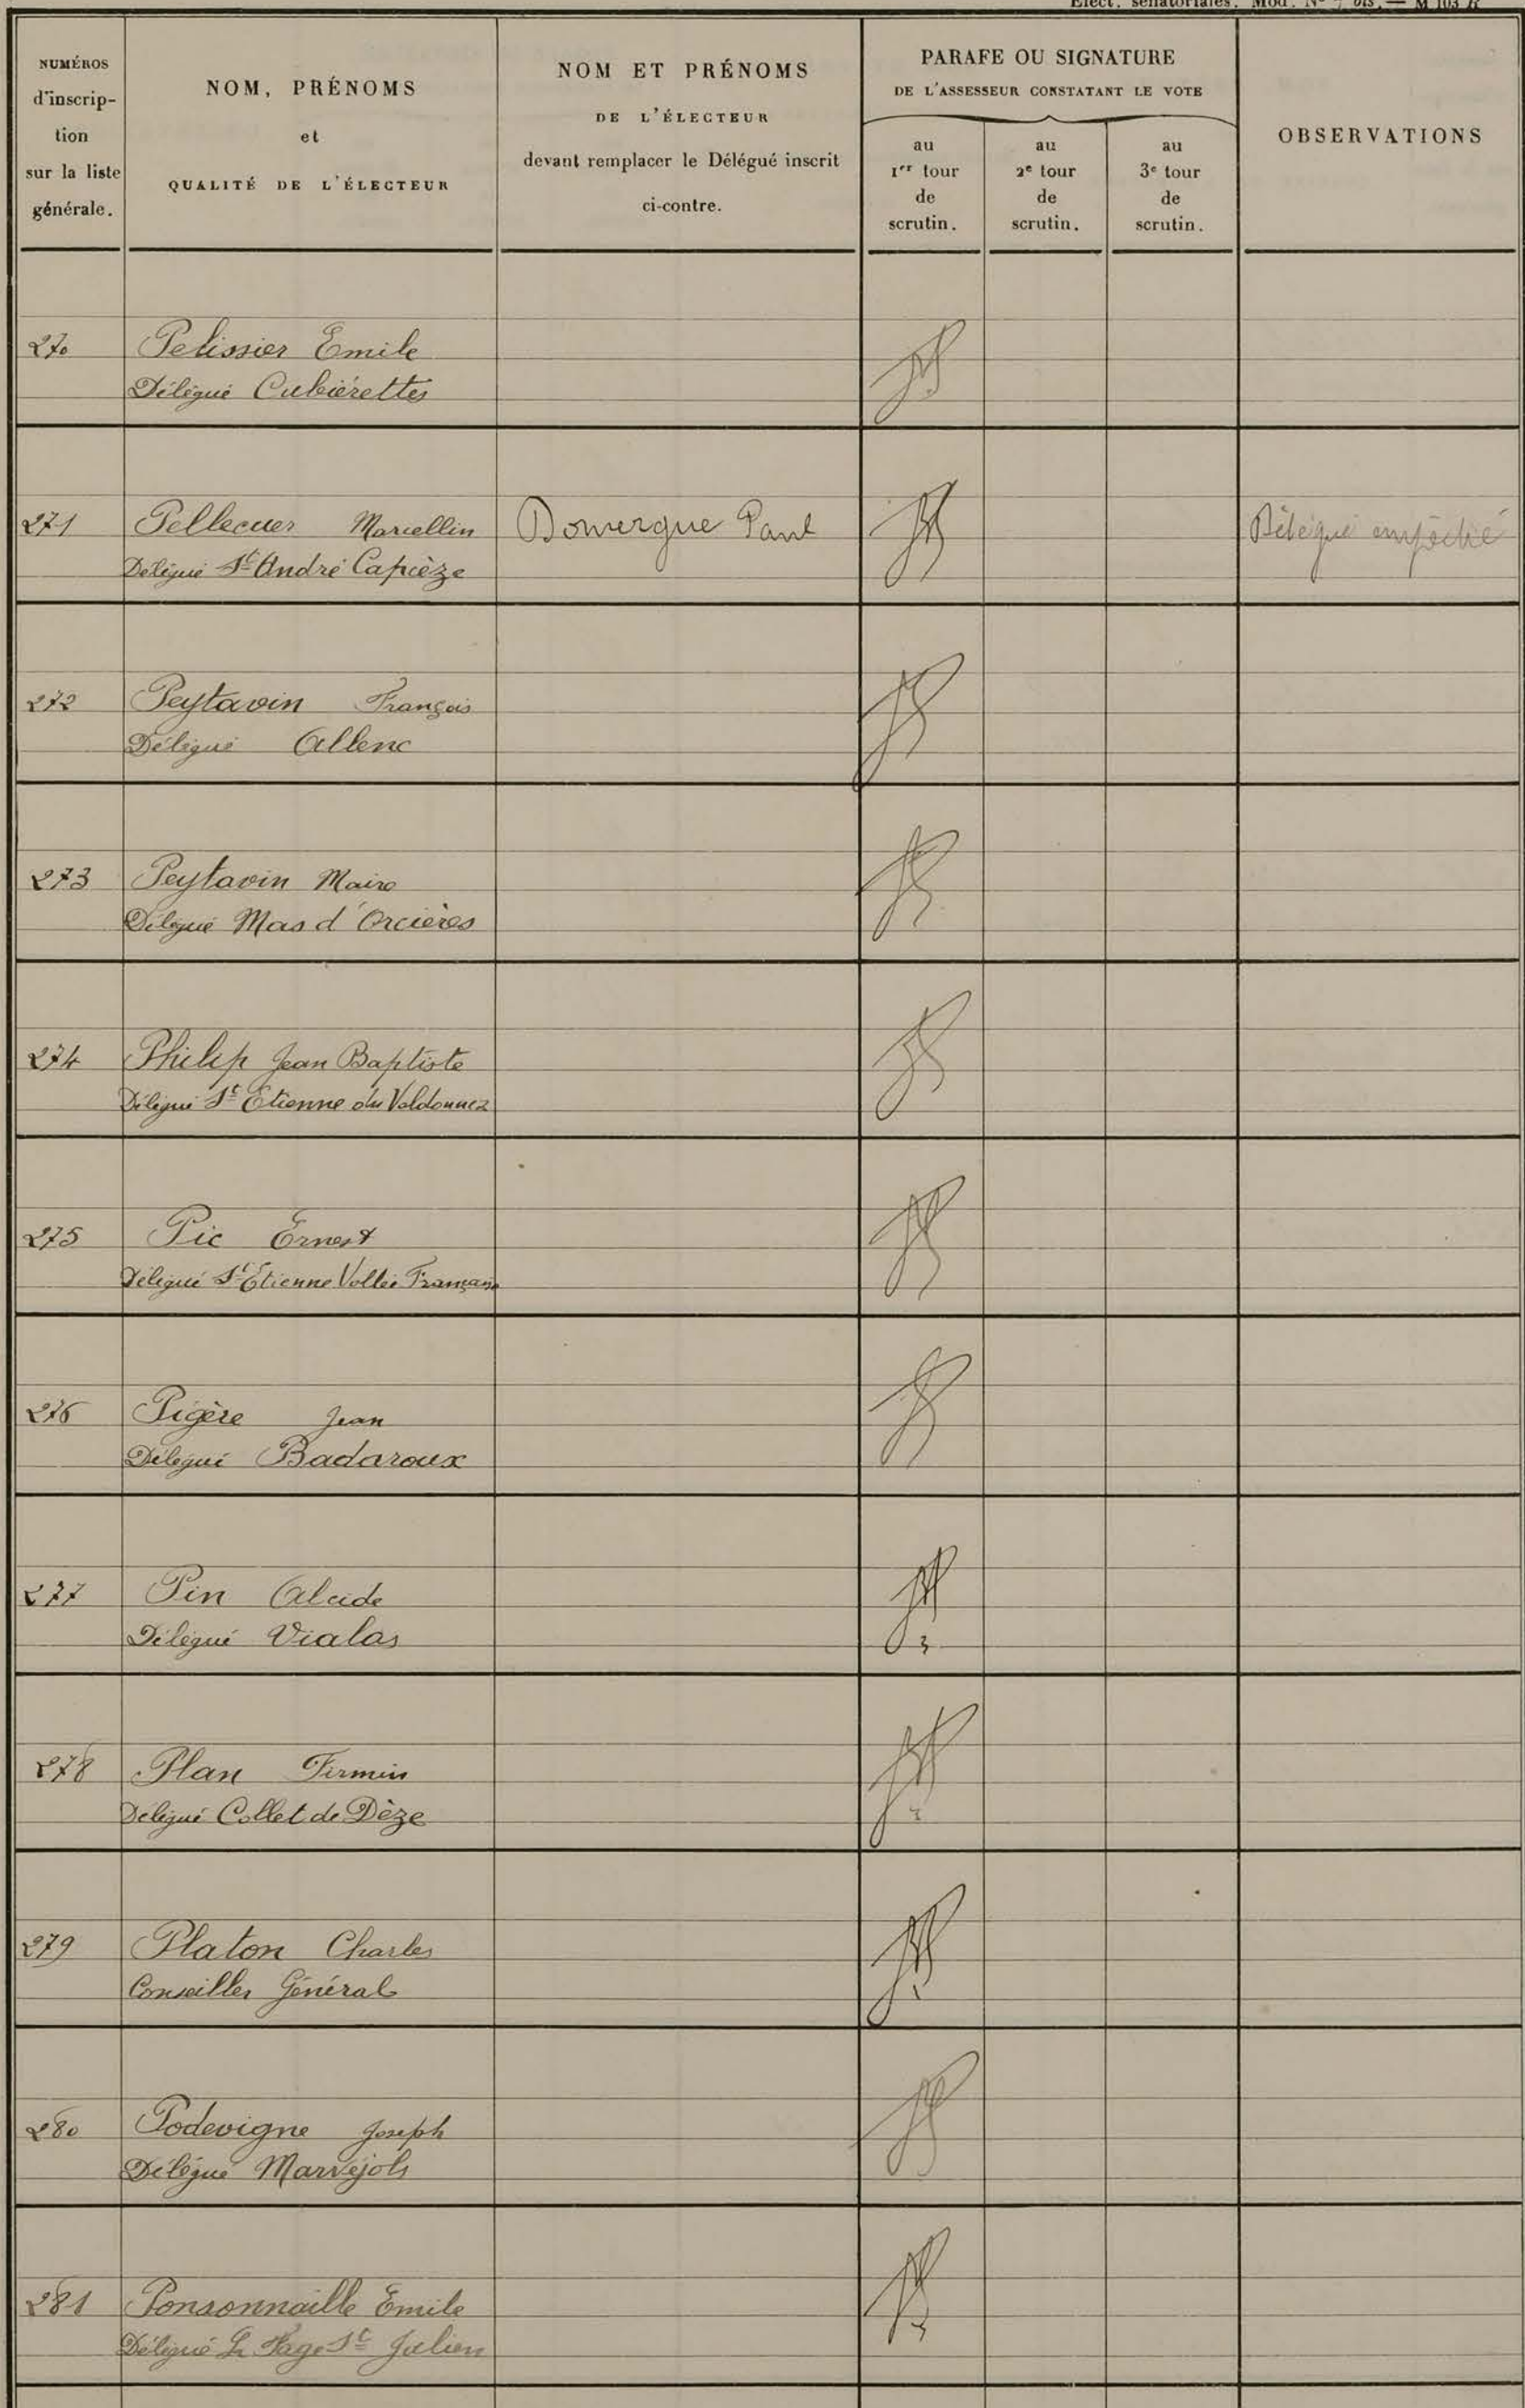 Élect. sénatoriales. Mod. N° 7 bis. — M 103 R
NUMÉROS
d'inscrip-
tion
sur la liste
générale.
NOM, PRÉNOMS
et
QUALITÉ DE L'ÉLECTEUR
NOM ET PRÉNOMS
DE L'ÉLECTEUR
devant remplacer le Délégué inscrit
ci-contre.
PARAFE OU SIGNATURE
DE L'ASSESSEUR CONSTATANT LE VOTE
au
1er tour
de
scrutin.
au
2e tour
de
scrutin.
au
3e tour
de
scrutin.
OBSERVATIONS
270 Pelissier Emile
Délégué Cubiérettes
271 Pellecuer Marcellin Domergue Paul Délégué empêché
Délégué St André Capcèze
272 Peytavin François
Délégué Allenc
273 Peytavin Maire
Délégué Mas d'Orcières
274 Philip Jean Baptiste
Délégué St Etienne du Valdonnez
275 Pic Ernest
Délégué St Etienne Vallée Française
276 Pigère Jean
Délégué Badaroux
277 Pin Alcide
Délégué Vialas
278 Plan Firmin
Délégué Collet de Dèze
279 Platon Charles
Conseiller Général
280 Podevigne Joseph
Délégué Marvejols
281 Ponsonnaille Emile
Délégué La Fage St Julien